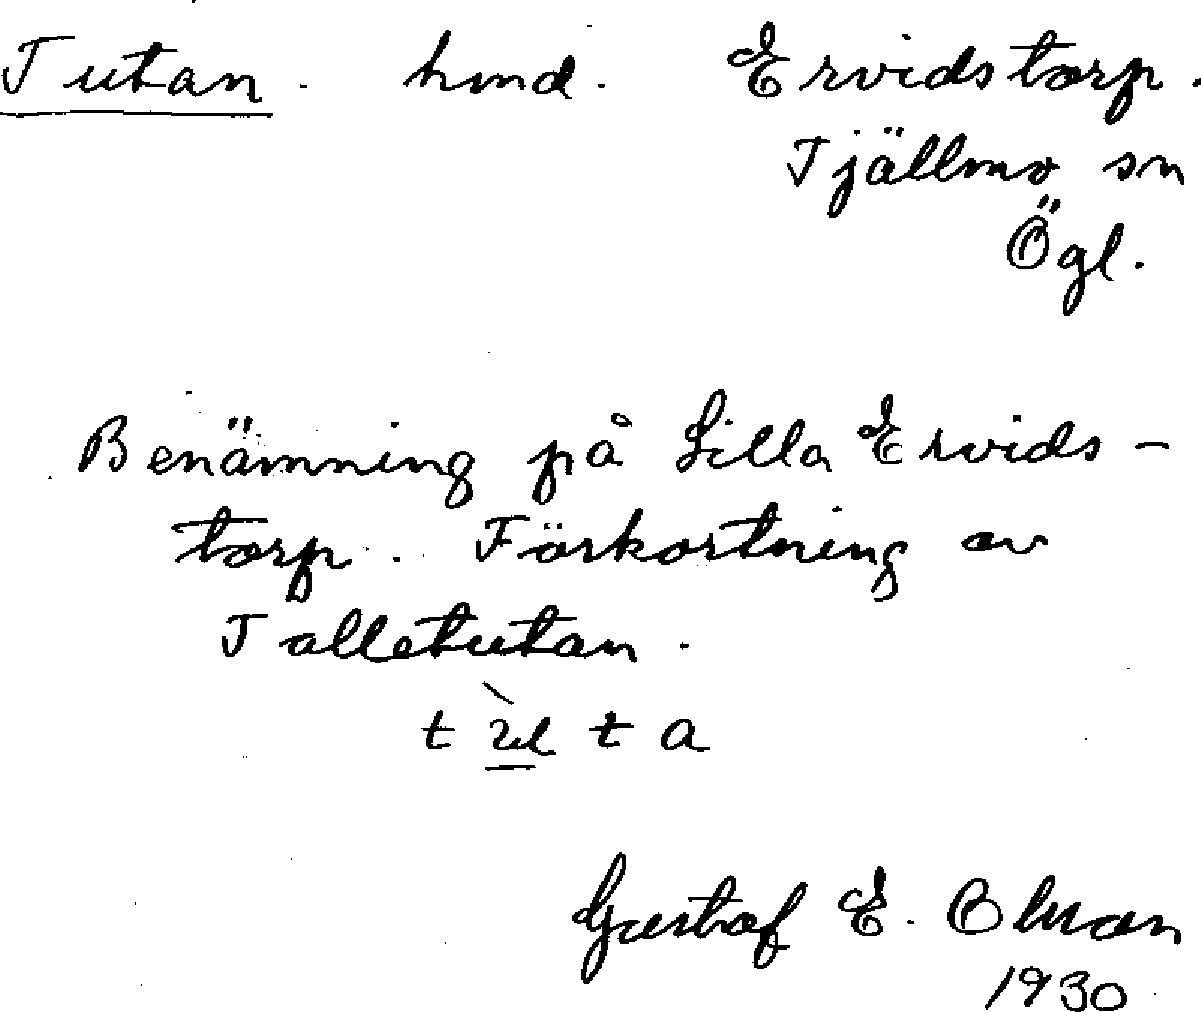 Tutan. hmd. Ervidstorp.
Tjällmo sn
Ögl.
Benämning på Lilla Ervids-
torp. Förkortning av
Talletutan.
Gustaf E.
1930